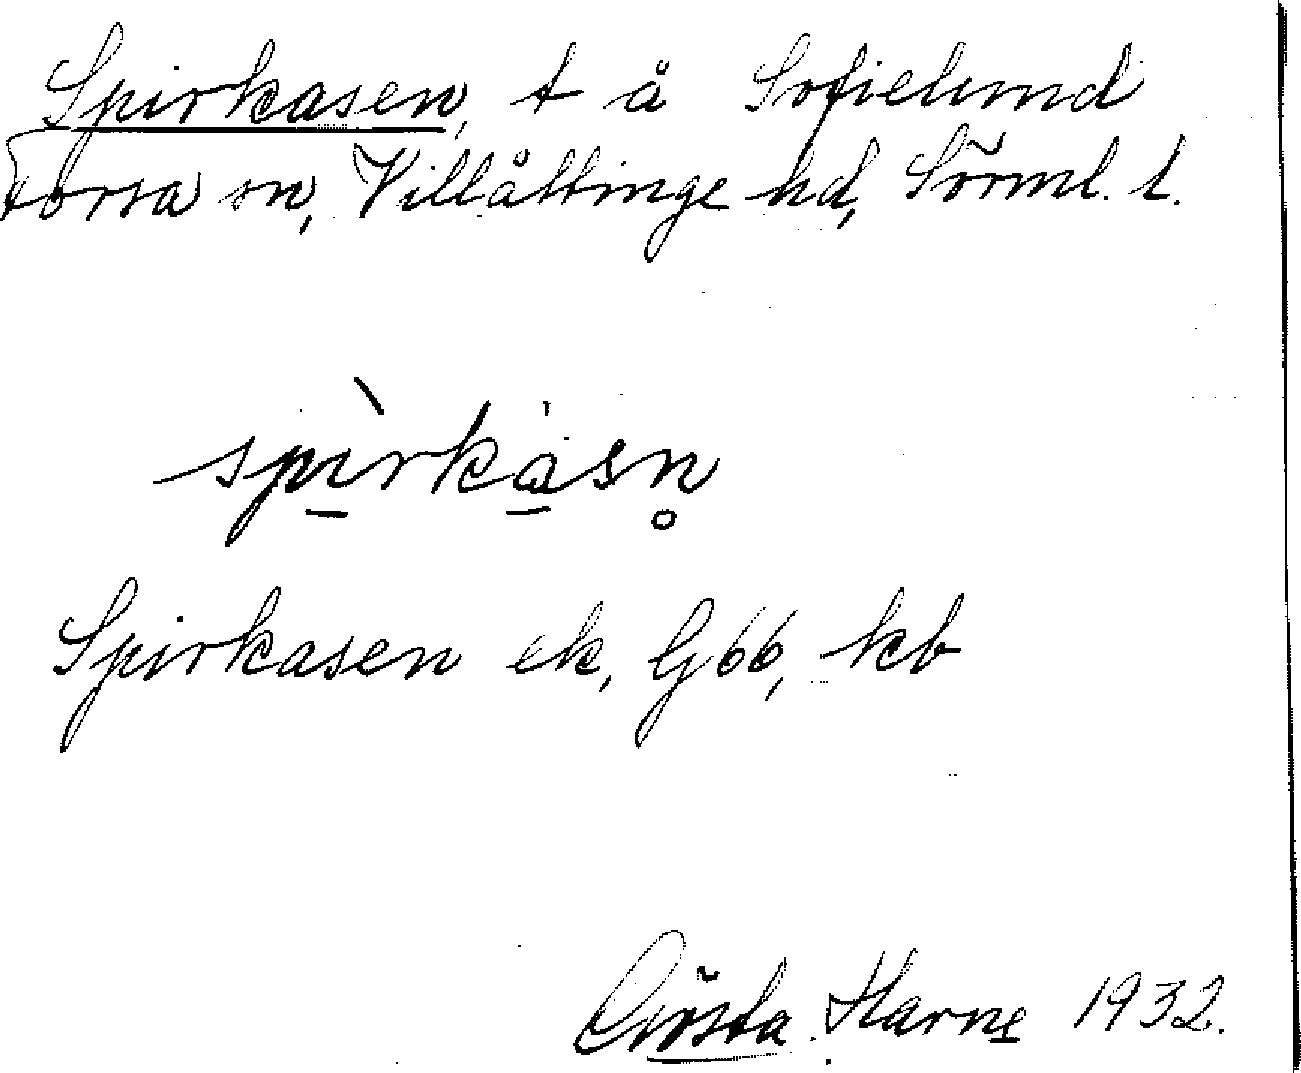 Spirkasen, t å Sofielund
Forsa sn, Villåttinge hd, Sörml. l.
spìrkásn̥
Spirkasen ek, G66, kb
Gösta Harne 1932.